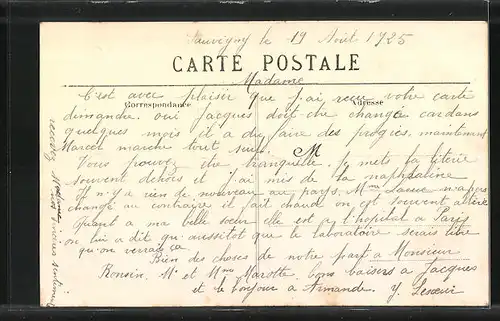 Sauvigny le 19 Août 1925
CARTE POSTALE
Madame
C'est avec plaisir que j'ai reçu votre carte
Correspondance
Adresse
dimanche. oui Jacques doit être changé car dans
quelques mois il a du faire des progrès, maintenant
Marcel marche tout seul.
M
Vous pouvez être tranquille. Je mets la literie
souvent dehors et j'ai mis de la naphtaline
Il n'y a rien de nouveau au pays. Mme n'a pas
changé au contraire il fait chaud on est souvent altéré
Quant a ma belle soeur elle est a l'hopital a Paris
on lui a dit qu'aussitot que le laboratoire serais libre
qu'on verrait ça
Bien des choses de notre part a Monsieur
Ronsin. Mr et Mme Marotte. bons baisers a Jacques
et le bonjour a Armande. Y.
recevez Madame nos sincères